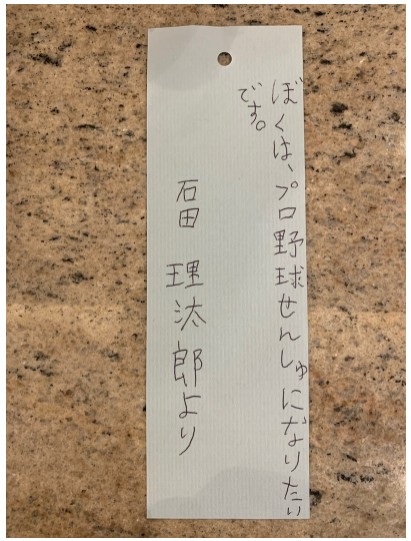 ぼくは、プロ野球せんしゅになりたい
です。
石田 理汰郎より